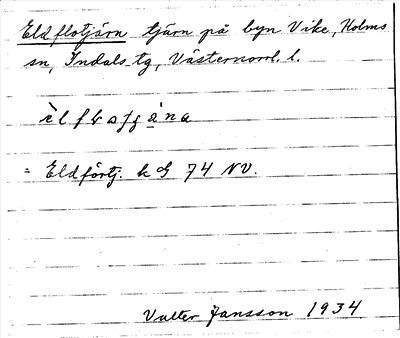 Eldflotjärn tjärn på byn Vike, Holms
sn, Indals tg, Västernorrl. l.
= Eldförtj. k G 74 NV.
Valter Jansson 1934